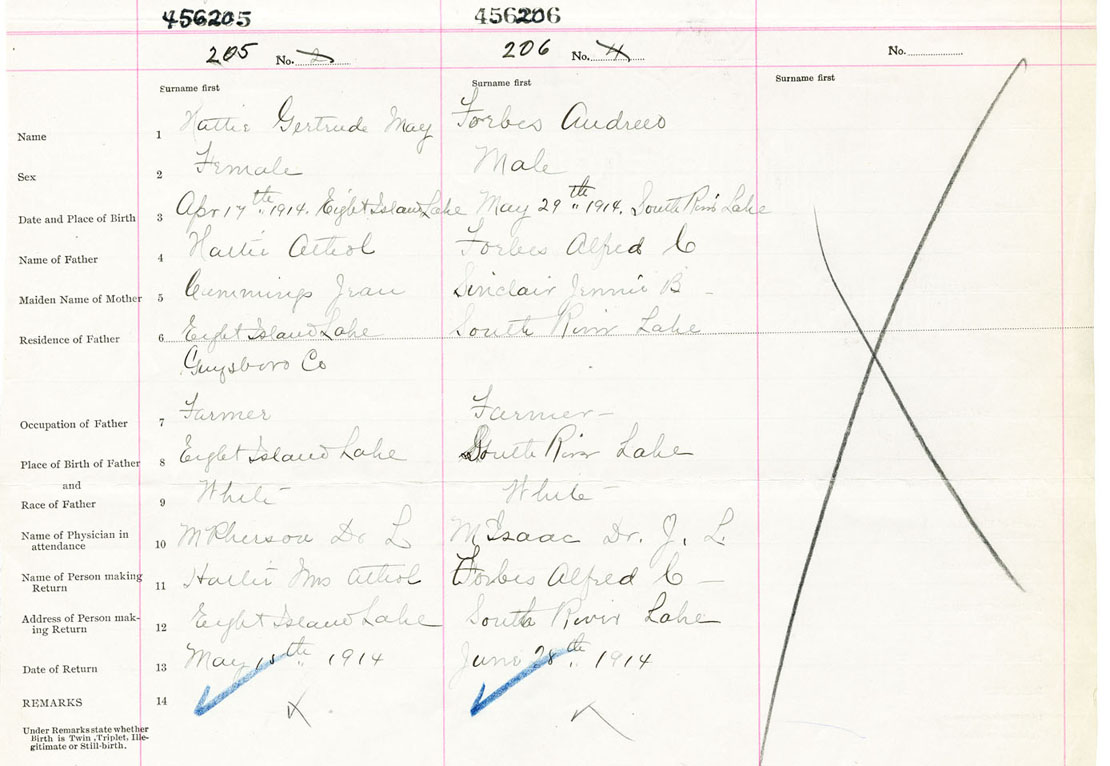 456205 456206
205 No. 2 206 No. 4 No.
Surname first Surname first Surname first
Name 1 Hattie Gertrude May Forbes Andrew
Sex 2 Female Male
Date and Place of Birth 3 Apr 17th 1914. Eight Island Lake May 29th 1914. South River Lake
Name of Father 4 Hattie Athol Forbes Alfred C
Maiden Name of Mother 5 Cummings Jean Sinclair Jennie B
Residence of Father 6 Eight Island Lake South River Lake
Guysboro Co
Occupation of Father 7 Farmer Farmer
Place of Birth of Father 8 Eight Island Lake South River Lake
and
Race of Father 9 White White
Name of Physician in
attendance 10 McPherson Dr L McIsaac Dr. J. L.
Name of Person making
Return 11 Hattie Mrs Athol Forbes Alfred C
Address of Person mak-
ing Return 12 Eight Island Lake South River Lake
Date of Return 13 May 15th 1914 June 28th 1914
REMARKS 14
Under Remarks state whether
Birth is Twin, Triplet, Ille-
gitimate or Still-birth.